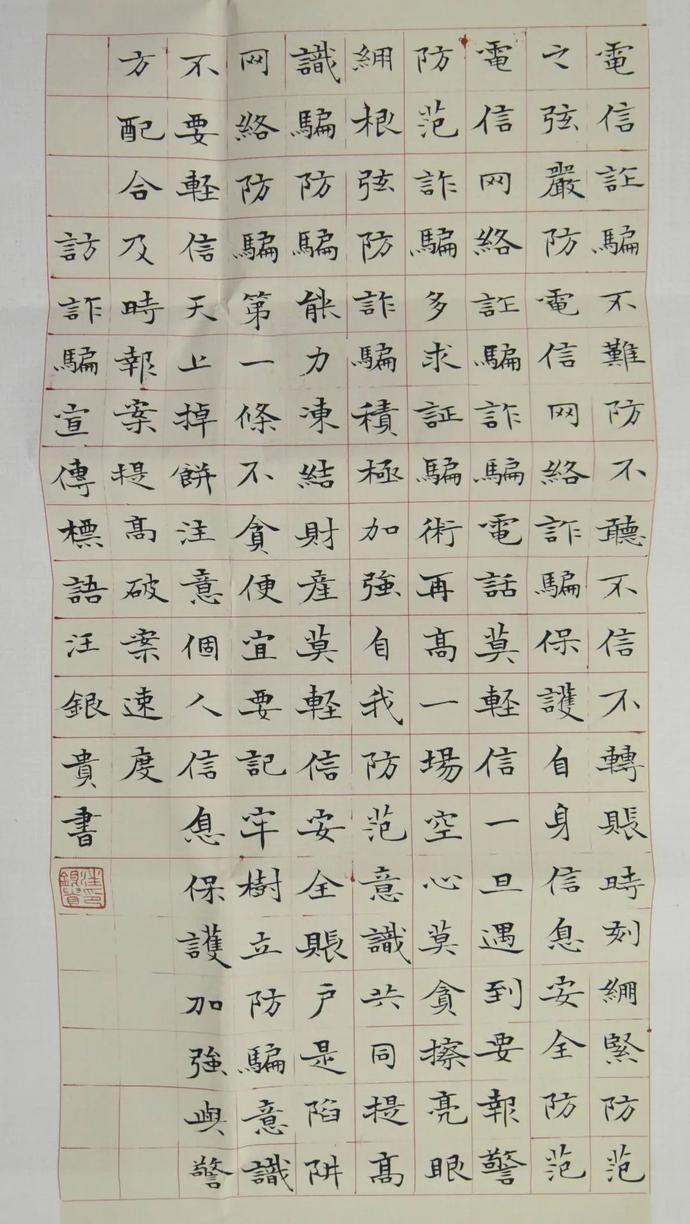 電信詐騙不難防不聽不信不轉賬時刻綳緊防范
之弦嚴防電信网絡詐騙保護自身信息安全防范
電信网絡詐騙詐騙電話莫輕信一旦遇到要報警
防范詐騙多求証騙術再高一場空心莫貪擦亮眼
綳根弦防詐騙積極加強自我防范意識共同提高
識騙防騙能力凍結財產莫輕信安全賬户是陷阱
网絡防騙第一條不貪便宜要記牢樹立防騙意識
不要輕信天上掉餅注意個人信息保護加強與警
方配合及時報案提高破案速度
訪詐騙宣傳標語汪銀貴書
汪銀貴印